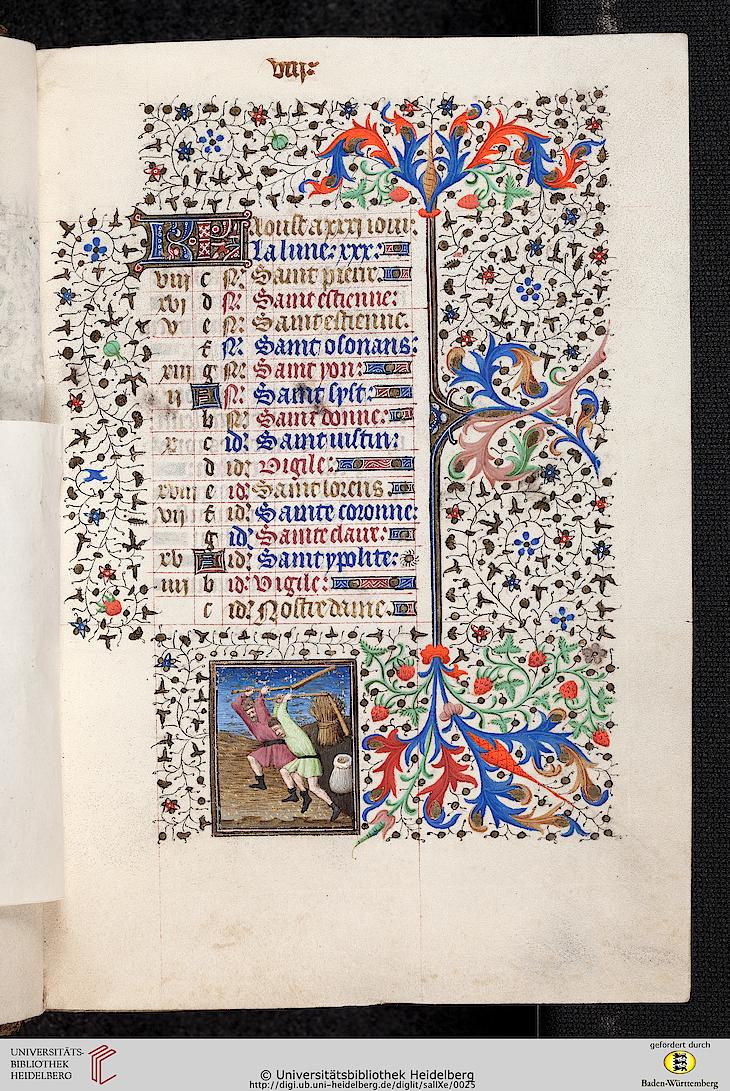 viii
KL Aoust a xxxi iour.
La lune: xxx:
viii c N: Saint pierre.
xvi d N: Saint estienne:
v e N: Saint estienne.
f N: Saint osonans:
xiii g N: Saint yon:
ii A N: Saint syst:
b N: Saint donne:
x c id: Saint iustin:
d id: Vigile:
xviii e id: Saint lorens
vii f id: Sainte coronne:
g id: Sainte claire:
xv A id: Saint ypolite:
iiii b id: Vigile:
c id: Nostre dame.
UNIVERSITÄTS-
BIBLIOTHEK
HEIDELBERG
© Universitätsbibliothek Heidelberg
http://digi.ub.uni-heidelberg.de/diglit/salIXe/0025
gefördert durch
Baden-Württemberg